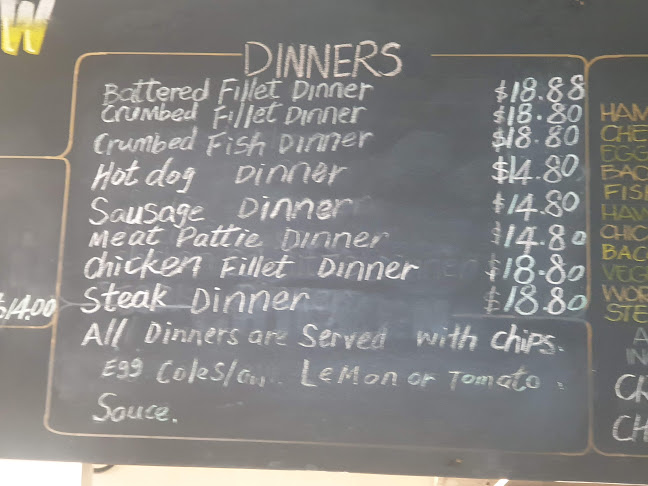 W
DINNERS
Battered Fillet Dinner $18.88
Crumbed Fillet Dinner $18.80
Crumbed Fish Dinner $18.80
Hot dog Dinner $14.80
Sausage Dinner $14.80
Meat Pattie Dinner $14.80
Chicken Fillet Dinner $18.80
Steak Dinner $18.80
All Dinners are Served with chips.
Egg Coleslaw. Lemon or Tomato.
Sauce.
$14.00
HAM
CHE
EGG
BAC
FIS
HAW
CHIC
BAC
VEG
WOR
STE
A
IN
CR
CH